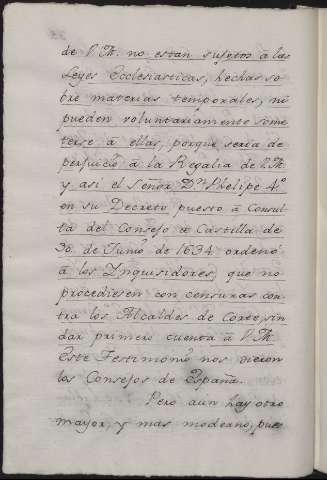 de V. M. no estan sujetos â las
Leyes Ecclesiasticas, hechas so-
bre materias temporales, ni
pueden voluntariamente some-
terse â ellas, porque seria de
perjuicio â la Regalia de V. M.
y asi el Señor Dn. Phelipe 4º
en su Decreto puesto â Consul-
ta del Consejo de Castilla de
30 de Junio de 1634 ordenó
â los Ynquisidores, que no
procediesen con censuras con-
tra los Alcaldes de Corte, sin
dar primero cuenta â V. M.
Este Testimonio nos dieron
los Consejos de España.
Pero aun hay otro
mayor, y mas moderno, pues